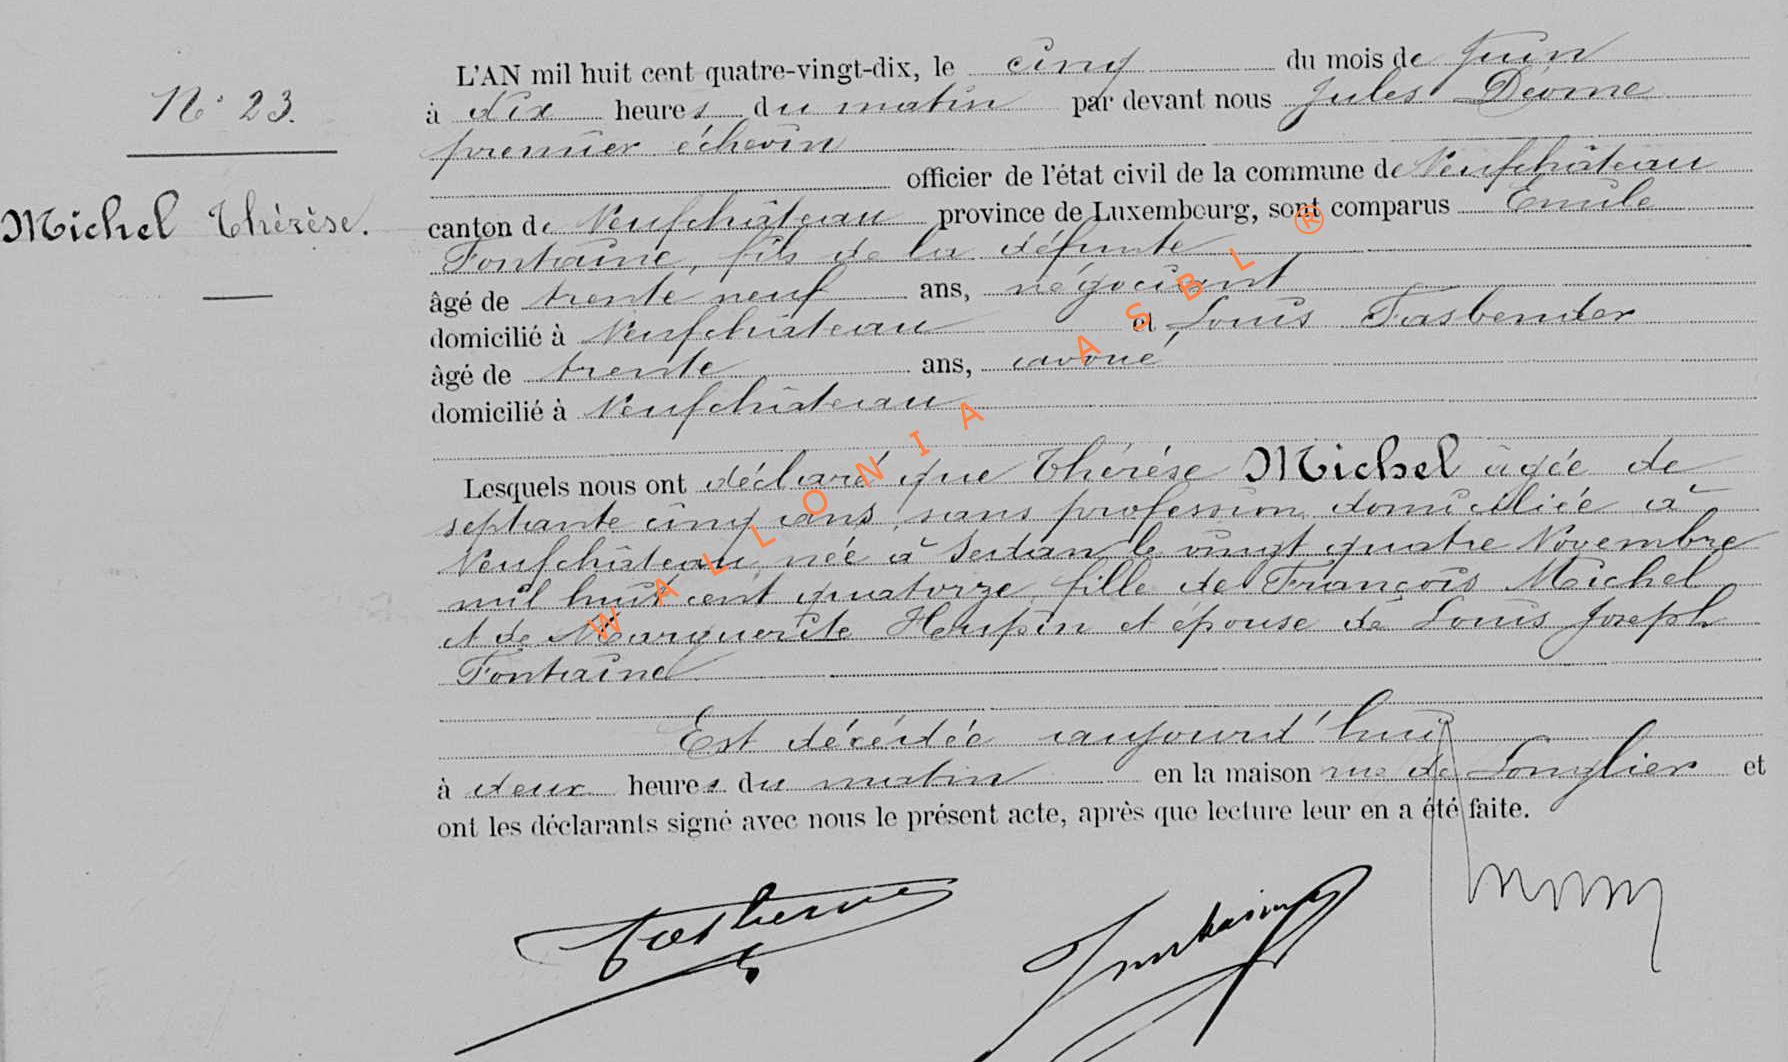 N° 23.
Michel Thérèse.
L'AN mil huit cent quatre-vingt-dix, le cinq du mois de Juin
à dix heures du matin par devant nous Jules Déome
premier échevin
officier de l'état civil de la commune de Neufchâteau
canton de Neufchâteau province de Luxembourg, sont comparus Emile
Fontaine, fils de la défunte
âgé de trente neuf ans, négociant
domicilié à Neufchâteau et Louis Fasbender
âgé de trente ans, avoué
domicilié à Neufchâteau
Lesquels nous ont déclaré que Thérèse Michel âgée de
septante cinq ans, sans profession domiciliée à
Neufchâteau, née à Sedan le vingt quatre Novembre
mil huit cent quatorze, fille de François Michel
et de Marguerite Heupin et épouse de Louis Joseph
Fontaine
Est décédée aujourd'hui
à deux heures du matin en la maison rue de Longlier et
ont les déclarants signé avec nous le présent acte, après que lecture leur en a été faite.
WALLONIA ASBL ®